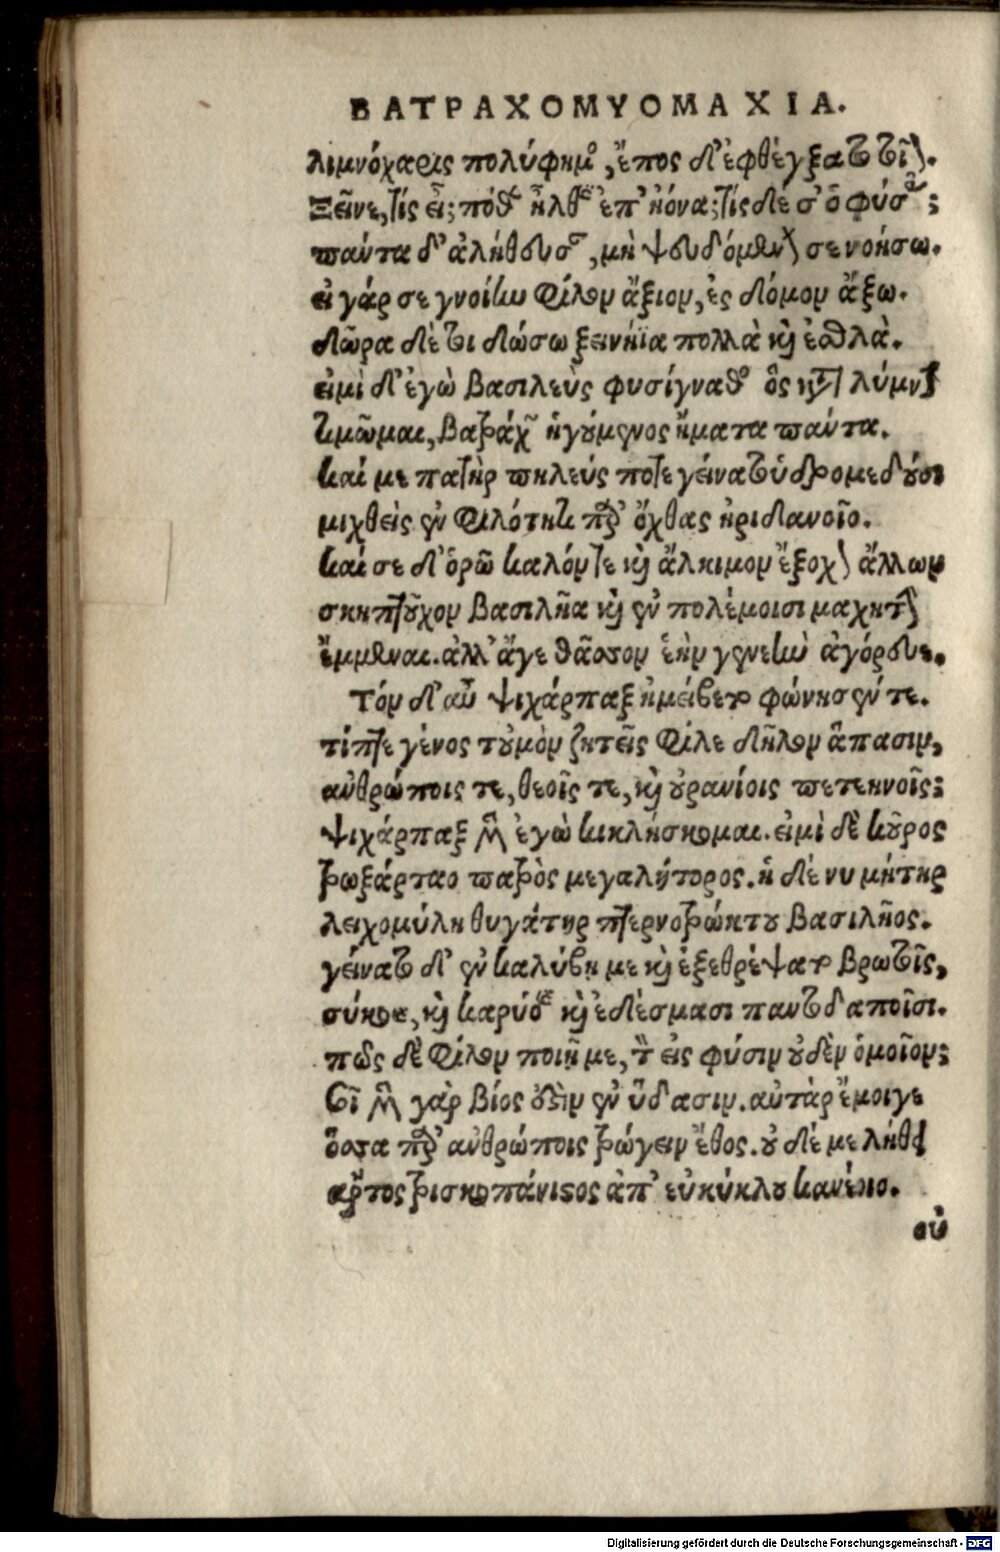 ΒΑΤΡΑΧΟΜΥΟΜΑΧΙΑ.
λιμνόχαρις πολύφημος, ἔπος δ' ἐφθέγξατο τοῖον.
Ξεῖνε, τίς εἶ; πόθεν ἦλθες ἐπ' ἠόνα; τίς δέ σ' ὁ φύσας;
πάντα δ' ἀλήθευσον, μὴ ψευδόμενον σε νοήσω.
εἰ γάρ σε γνοίην φίλον ἄξιον, ἐς δόμον ἄξω.
δῶρα δέ τοι δώσω ξεινήϊα πολλὰ καὶ ἐσθλὰ.
εἰμὶ δ' ἐγὼ βασιλεὺς φυσίγναθος ὃς κατὰ λύμνην
τιμῶμαι, βατράχων ἡγούμενος ἤματα πάντα.
καί με πατὴρ πηλεύς ποτε γείνατο ὑδρομεδούσῃ
μιχθεὶς ἐν φιλότητι παρ' ὄχθας ἠριδανοῖο.
καί σε δ' ὁρῶ καλόν τε καὶ ἄλκιμον ἔξοχον ἄλλων
σκηπτοῦχον βασιλῆα καὶ ἐν πολέμοισι μαχητὴν
ἔμμεναι. ἀλλ' ἄγε θᾶσσον ἑὴν γενεὴν ἀγόρευε.
Τόν δ' αὖ ψιχάρπαξ ἠμείβετο φώνησέν τε.
τίπτε γένος τοὐμὸν ζητεῖς φίλε δῆλον ἅπασιν,
ἀνθρώποις τε, θεοῖς τε, καὶ οὐρανίοις πετεηνοῖς;
ψιχάρπαξ μὲν ἐγὼ κικλήσκομαι. εἰμὶ δὲ κοῦρος
τρωξάρταο πατρὸς μεγαλήτορος. ἡ δέ νυ μήτηρ
λειχομύλη θυγάτηρ πτερνοτρώκτου βασιλῆος.
γείνατο δ' ἐν καλύβῃ με καὶ ἐξεθρέψατο βρωτοῖς,
σύκοις, καὶ καρύοις καὶ ἐδέσμασι παντοδαποῖσι.
πῶς δὲ φίλον ποιῇ με, τὸν εἰς φύσιν οὐδὲν ὁμοῖον;
σοὶ μὲν γὰρ βίος ἐστὶν ἐν ὕδασιν. αὐτὰρ ἔμοιγε
ὅσσα παρ' ἀνθρώποις τρώγειν ἔθος. οὐ δέ με λήθει
ἄρτος τρισκοπάνιστος ἀπ' εὐκύκλου κανέοιο.
οὐ
Digitalisierung gefördert durch die Deutsche Forschungsgemeinschaft - DFG